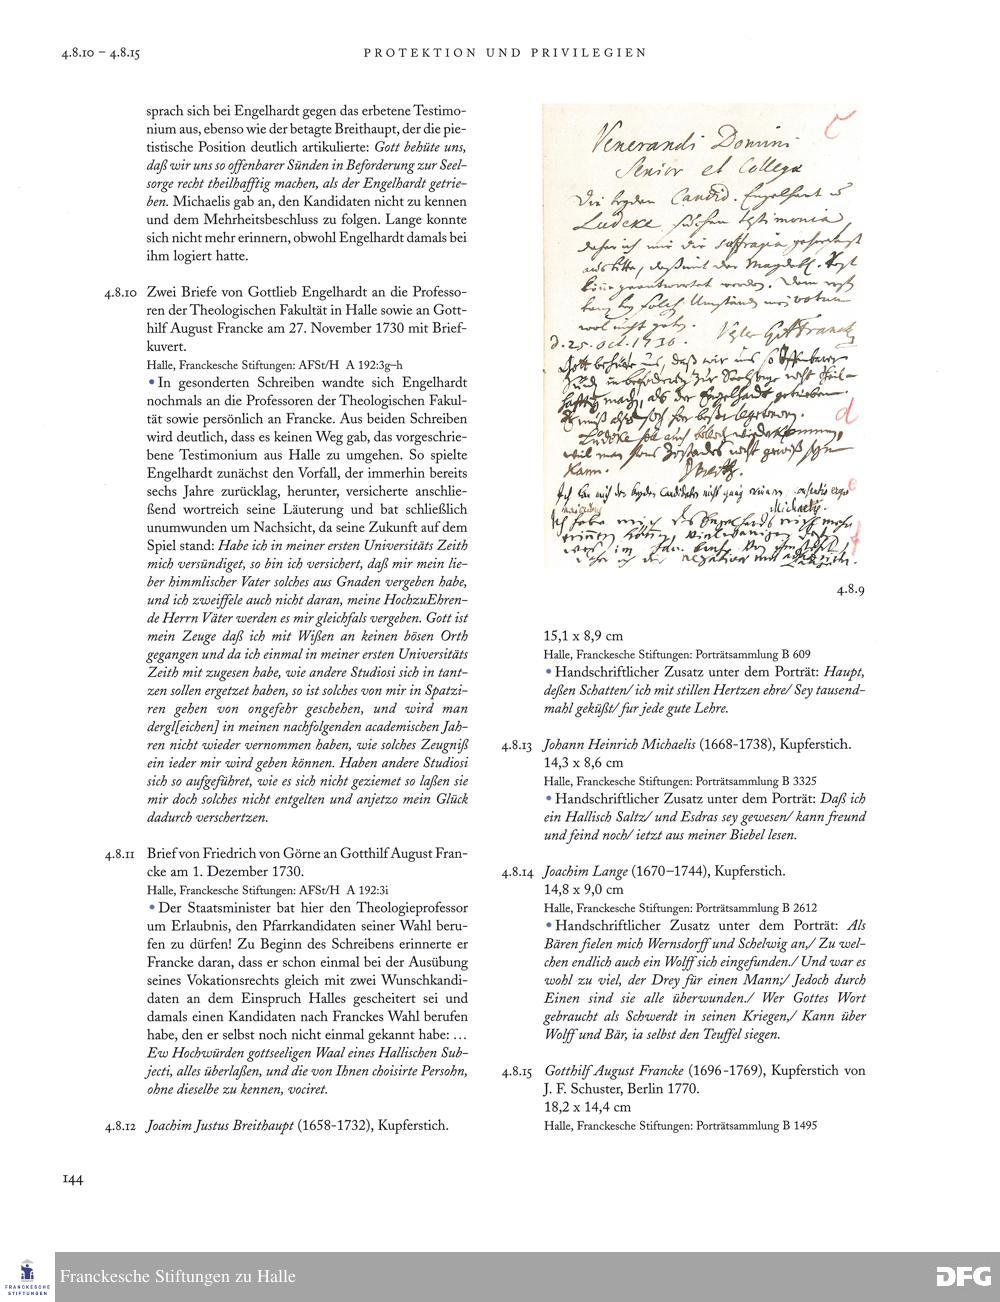 4.8.10 – 4.8.15
PROTEKTION UND PRIVILEGIEN
sprach sich bei Engelhardt gegen das erbetene Testimo-
nium aus, ebenso wie der betagte Breithaupt, der die pie-
tistische Position deutlich artikulierte: Gott behüte uns,
daß wir uns so offenbarer Sünden in Beforderung zur Seel-
sorge recht theilhafftig machen, als der Engelhardt getrie-
ben. Michaelis gab an, den Kandidaten nicht zu kennen
und dem Mehrheitsbeschluss zu folgen. Lange konnte
sich nicht mehr erinnern, obwohl Engelhardt damals bei
ihm logiert hatte.
4.8.10 Zwei Briefe von Gottlieb Engelhardt an die Professo-
ren der Theologischen Fakultät in Halle sowie an Gott-
hilf August Francke am 27. November 1730 mit Brief-
kuvert.
Halle, Franckesche Stiftungen: AFSt/H A 192:3g–h
• In gesonderten Schreiben wandte sich Engelhardt
nochmals an die Professoren der Theologischen Fakul-
tät sowie persönlich an Francke. Aus beiden Schreiben
wird deutlich, dass es keinen Weg gab, das vorgeschrie-
bene Testimonium aus Halle zu umgehen. So spielte
Engelhardt zunächst den Vorfall, der immerhin bereits
sechs Jahre zurücklag, herunter, versicherte anschlie-
ßend wortreich seine Läuterung und bat schließlich
unumwunden um Nachsicht, da seine Zukunft auf dem
Spiel stand: Habe ich in meiner ersten Universitäts Zeith
mich versündiget, so bin ich versichert, daß mir mein lie-
ber himmlischer Vater solches aus Gnaden vergeben habe,
und ich zweiffele auch nicht daran, meine HochzuEhren-
de Herrn Väter werden es mir gleichfals vergeben. Gott ist
mein Zeuge daß ich mit Wißen an keinen bösen Orth
gegangen und da ich einmal in meiner ersten Universitäts
Zeith mit zugesen habe, wie andere Studiosi sich in tant-
zen sollen ergetzet haben, so ist solches von mir in Spatzi-
ren gehen von ongefehr geschehen, und wird man
dergl[eichen] in meinen nachfolgenden academischen Jah-
ren nicht wieder vernommen haben, wie solches Zeugniß
ein ieder mir wird geben können. Haben andere Studiosi
sich so aufgeführet, wie es sich nicht geziemet so laßen sie
mir doch solches nicht entgelten und anjetzo mein Glück
dadurch verschertzen.
4.8.11 Brief von Friedrich von Görne an Gotthilf August Fran-
cke am 1. Dezember 1730.
Halle, Franckesche Stiftungen: AFSt/H A 192:3i
• Der Staatsminister bat hier den Theologieprofessor
um Erlaubnis, den Pfarrkandidaten seiner Wahl beru-
fen zu dürfen! Zu Beginn des Schreibens erinnerte er
Francke daran, dass er schon einmal bei der Ausübung
seines Vokationsrechts gleich mit zwei Wunschkandi-
daten an dem Einspruch Halles gescheitert sei und
damals einen Kandidaten nach Franckes Wahl berufen
habe, den er selbst noch nicht einmal gekannt habe: …
Ew Hochwürden gottseeligen Waal eines Hallischen Sub-
jecti, alles überlaßen, und die von Ihnen choisirte Persohn,
ohne dieselbe zu kennen, vociret.
4.8.12 Joachim Justus Breithaupt (1658-1732), Kupferstich.
Venerandi Domini
Senior et Collega
Die beyden Candid. Engelhart
Ludeke suchen testimonia
daher ich mir die suffragia
d. 25. Oct. 1730.
Gott behüte uns, daß wir uns so offenbarer
d
kann.
e
Michaelis.
4.8.9
15,1 x 8,9 cm
Halle, Franckesche Stiftungen: Porträtsammlung B 609
• Handschriftlicher Zusatz unter dem Porträt: Haupt,
deßen Schatten/ ich mit stillen Hertzen ehre/ Sey tausend-
mahl geküßt/ fur jede gute Lehre.
4.8.13 Johann Heinrich Michaelis (1668-1738), Kupferstich.
14,3 x 8,6 cm
Halle, Franckesche Stiftungen: Porträtsammlung B 3325
• Handschriftlicher Zusatz unter dem Porträt: Daß ich
ein Hallisch Saltz/ und Esdras sey gewesen/ kann freund
und feind noch/ ietzt aus meiner Biebel lesen.
4.8.14 Joachim Lange (1670–1744), Kupferstich.
14,8 x 9,0 cm
Halle, Franckesche Stiftungen: Porträtsammlung B 2612
• Handschriftlicher Zusatz unter dem Porträt: Als
Bären fielen mich Wernsdorff und Schelwig an,/ Zu wel-
chen endlich auch ein Wolff sich eingefunden./ Und war es
wohl zu viel, der Drey für einen Mann;/ Jedoch durch
Einen sind sie alle überwunden./ Wer Gottes Wort
gebraucht als Schwerdt in seinen Kriegen,/ Kann über
Wolff und Bär, ia selbst den Teuffel siegen.
4.8.15 Gotthilf August Francke (1696-1769), Kupferstich von
J. F. Schuster, Berlin 1770.
18,2 x 14,4 cm
Halle, Franckesche Stiftungen: Porträtsammlung B 1495
144
FRANCKESCHE
STIFTUNGEN
Franckesche Stiftungen zu Halle
DFG